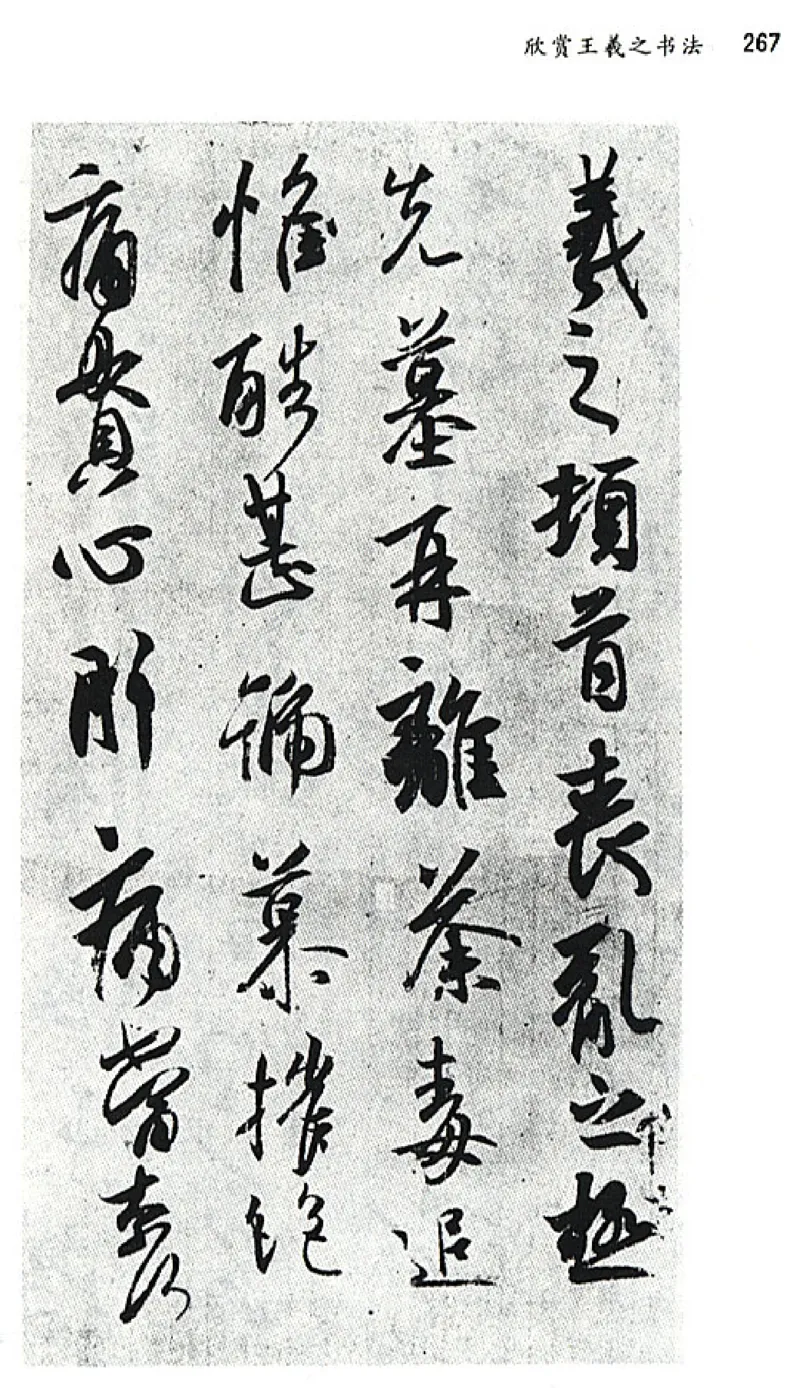 欣赏王羲之书法 267
羲之頓首喪亂之極
先墓再離荼毒追
惟酷甚號慕摧絕
痛貫心肝痛當奈何